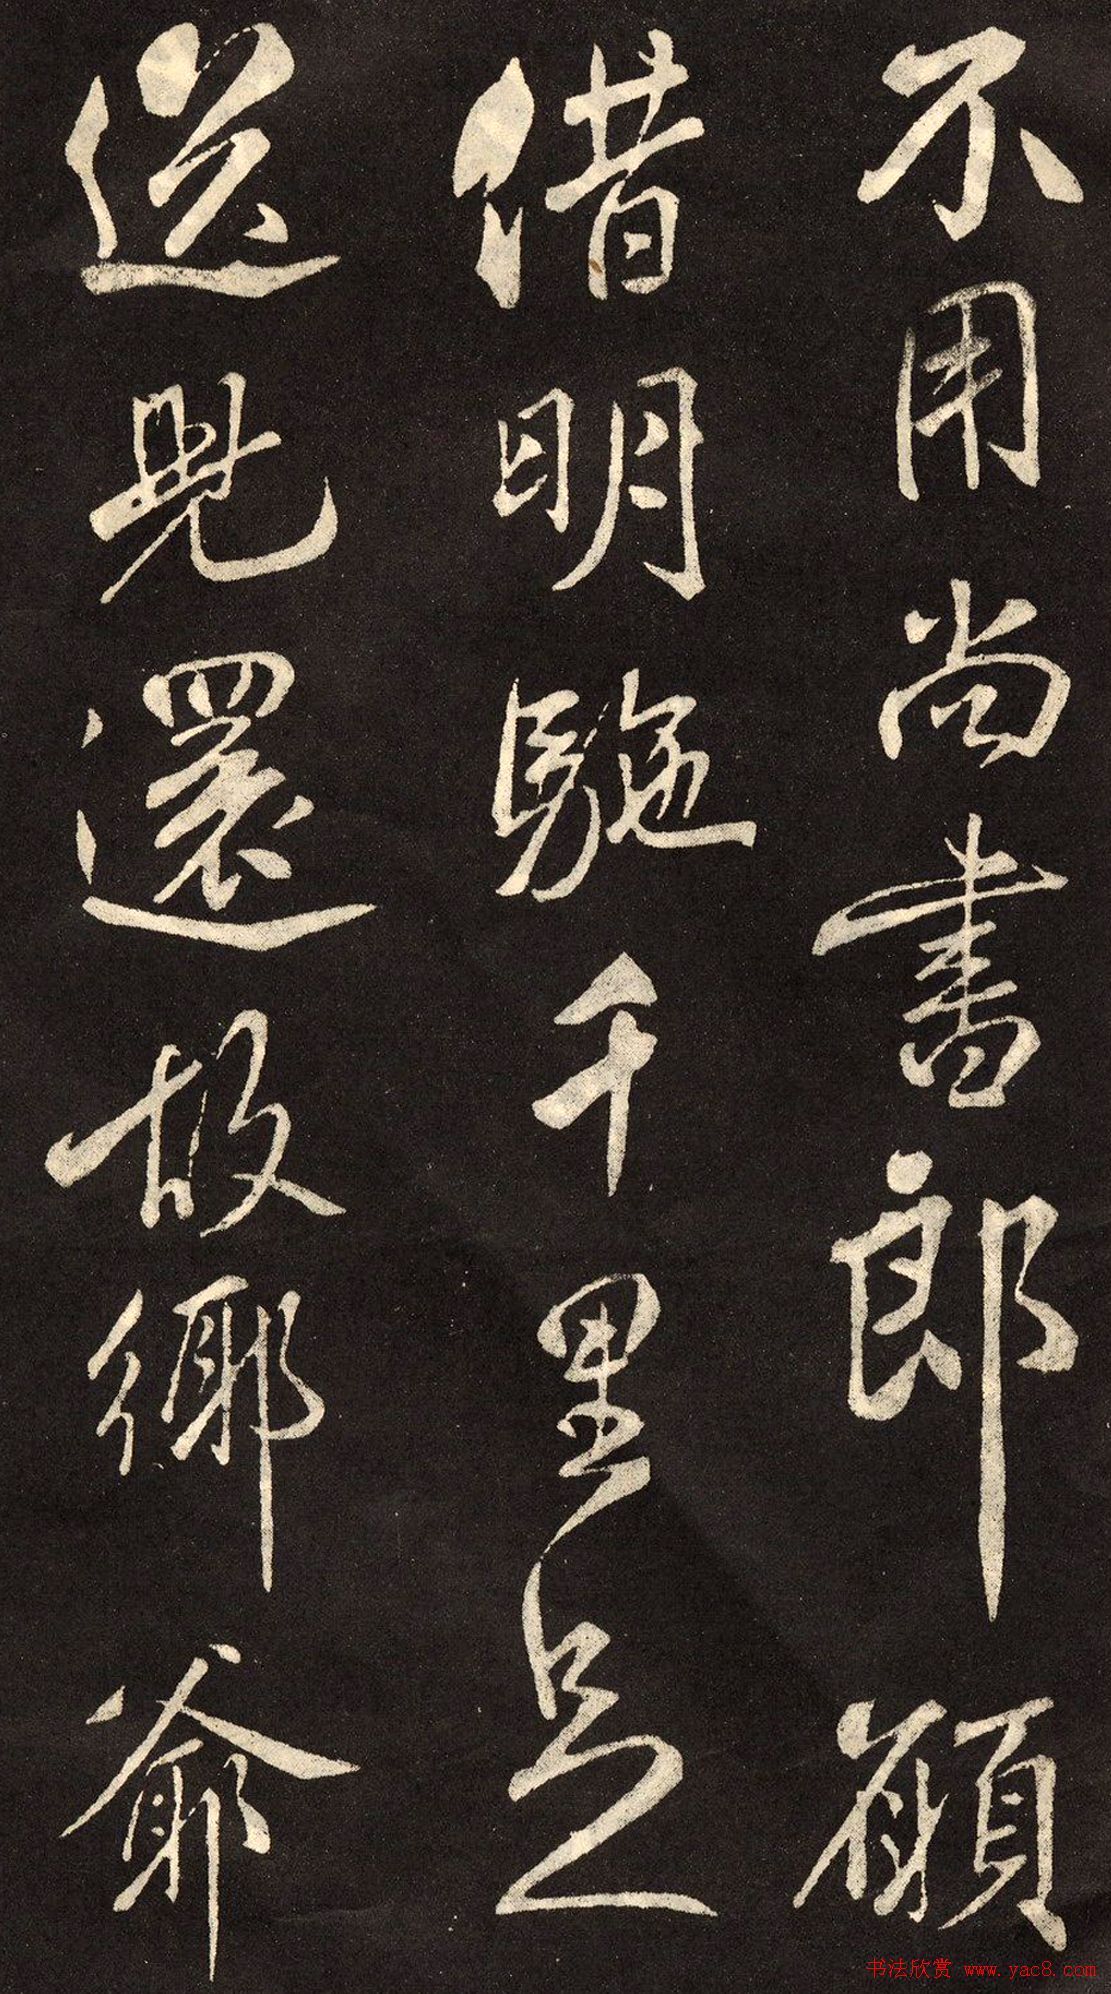 不用尚書郎願
借明駞千里足
送兒還故鄉爺
书法欣赏 www.yac8.com